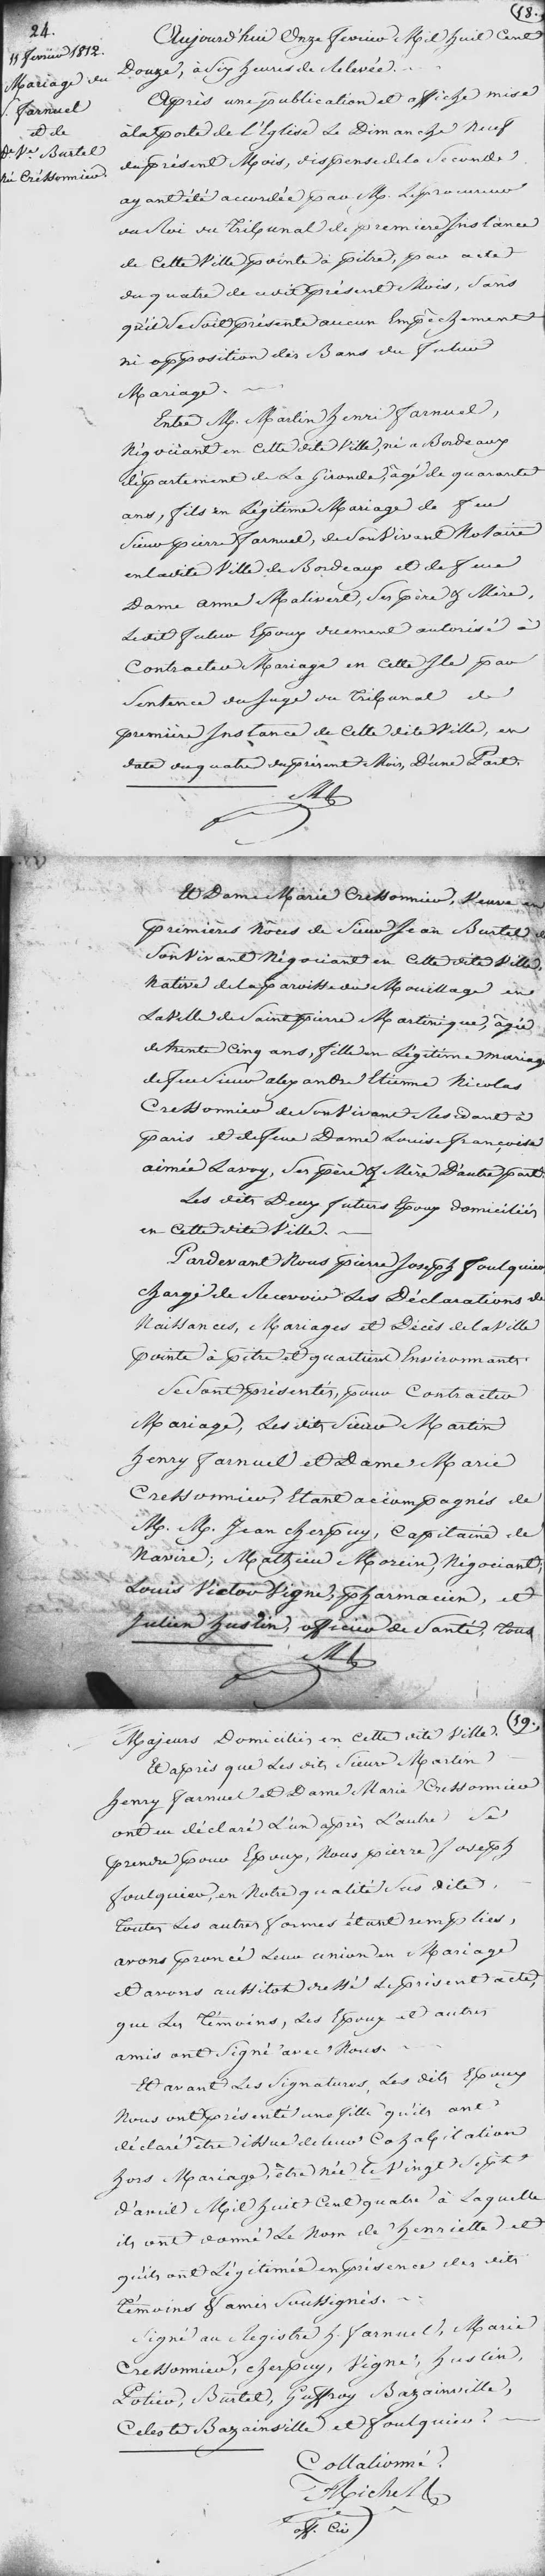 18.
24.
11 février 1812.
Mariage du
S. Farnuel
et de
De. Ve. Burtel
née Cressonnier.
Aujourd'hui Onze février Mil huit Cent
Douze, à Six heures de Relevée.
Après une publication et affiche mise
à la porte de l'Eglise Le Dimanche Neuf
du présent Mois, dispense de la Seconde
ayant été accordée par M. Le procureur
du Roi du Tribunal de premiere Instance
de Cette Ville pointe à pitre, par acte
du quatre de cedit présent Mois, Sans
qu'il Se Soit présenté aucun Empêchement
ni opposition des Bans du futur
Mariage.
Entre M. Martin henri farnuel,
Négociant en Cette dite Ville, né a Bordeaux
département de La Gironde, âgé de quarante
ans, fils en Légitime Mariage de feu
Sieur pierre farnuel, de Son Vivant Notaire
en ladite Ville de Bordeaux et de feue
Dame anne Malivert, Ses père & Mère,
Ledit futur Epoux duement autorisé à
Contracter Mariage en Cette Ile par
Sentence du Juge du Tribunal de
première Instance de Cette dite Ville, en
date du quatre du présent Mois, D'une Part.
Et Dame Marie Cressonnier, Veuve en
premières Nôces de Sieur Jean Burtel de
Son Vivant Négociant en Cette dite Ville,
Native de la paroisse du Mouillage en
La Ville de Saint pierre Martinique, âgée
de trente Cinq ans, fille en Légitime mariage
de feu Sieur alexandre Etienne Nicolas
Cressonnier de Son Vivant Residant à
paris et de feue Dame Louise françoise
aimée Lavoy, Ses père & Mère D'autre part.
Les dits Deux futurs Epoux domiciliés
en Cette dite Ville.
Pardevant Nous pierre Joseph foulquier
chargé de Recevoir Les Déclarations de
Naissances, Mariages et Décès de la Ville
pointe à pitre et quartiers Environnants.
Se Sont présentés, pour Contracter
Mariage, Les dits Sieur Martin
henry farnuel et Dame Marie
Cressonnier, Etant accompagnés de
M. M. Jean cherpuy, Capitaine de
Navire; Mathieu Morein, Négociant;
Louis Victor Vigne, pharmacien, et
Julien hustin, officier de Santé, tous
19.
Majeurs Domiciliés en cette dite Ville.
Et après que Les dits Sieur Martin
henry farnuel et Dame Marie Cressonnier
ont eu déclaré L'un après L'autre Se
prendre pour Epoux, Nous pierre Joseph
foulquier, en Notre qualité Sus dite,
toutes Les autres formes étant remplies,
avons proncé Leur union en Mariage
et avons aussitot dressé Le présent acte,
que Les Témoins, Les Epoux et autres
amis ont Signé avec Nous.
Et avant Les Signatures, Les dits Epoux
Nous ont présenté une fille qu'ils ont
déclaré être issue de leur Cohabitation
hors Mariage, être née le Vingt Sept
d'avril Mil huit Cent quatre à Laquelle
ils ont donné Le Nom de henriette et
qu'ils ont Légitimée en présence des dits
Témoins & amis Soussignés.
Signé au Registre h. farnuel, Marie
Cressonnier, cherpuy, Vigne, hustin,
Potier, Burtel, Guffroy Bazainville,
Celeste Bazainville et foulquier.
Collationné.
Michel
off. Civ